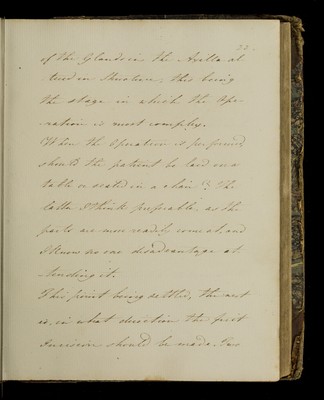 22.
of the Glands in the Axilla at
this being
the stage in which the Ope-
ration is most complex.
When the Operation is performed
should the patient be laid on a
table or seated in a chair? The
latter I think preferable, as the
parts are more readily come at, and
I know no one disadvantage at
-tending it.
This point being settled, the next
is, in what direction the first
Incision should be made. Two